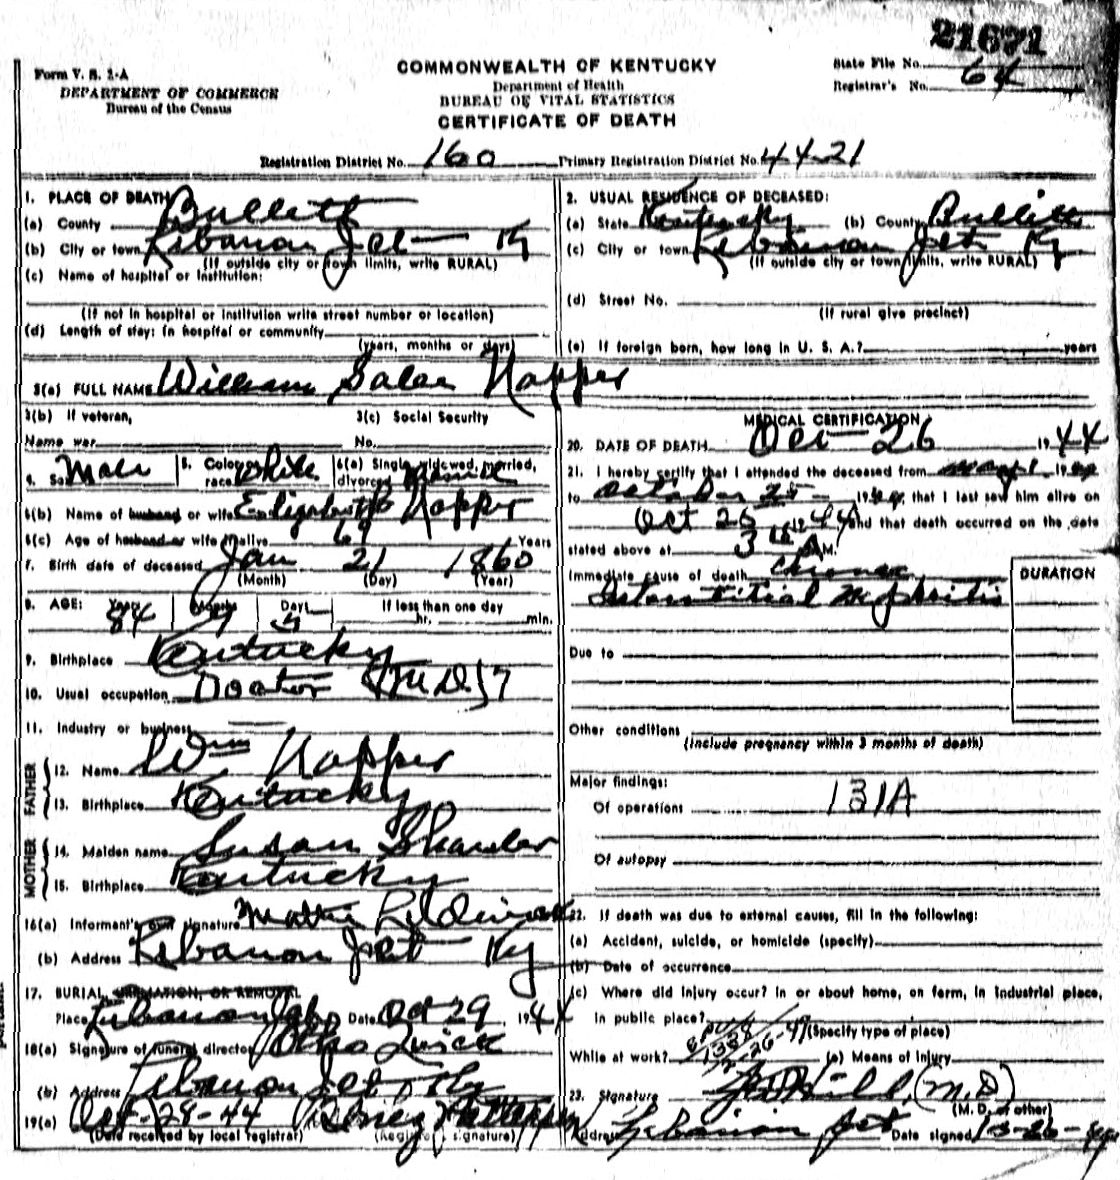 21671
Form V. S. 1-A
DEPARTMENT OF COMMERCE
Bureau of the Census
COMMONWEALTH OF KENTUCKY
Department of Health
BUREAU OF VITAL STATISTICS
CERTIFICATE OF DEATH
State File No.
Registrar's No. 64
Registration District No. 160 Primary Registration District No. 4421
1. PLACE OF DEATH
(a) County Bullitt
(b) City or town Lebanon Jct Ky
(If outside city or town limits, write RURAL)
(c) Name of hospital or institution:
(If not in hospital or institution write street number or location)
(d) Length of stay: In hospital or community
(years, months or days)
2. USUAL RESIDENCE OF DECEASED:
(a) State Kentucky (b) County Bullitt
(c) City or town Lebanon Jct Ky
(If outside city or town limits, write RURAL)
(d) Street No.
(If rural give precinct)
(e) If foreign born, how long in U. S. A.? years
3(a) FULL NAME William Napper
3(b) If veteran,
Name war
3(c) Social Security
No.
4. Sex Male 5. Color or race White 6(a) Single, widowed, married, divorced
6(b) Name of husband or wife Elizabeth Napper
6(c) Age of husband or wife if alive 69 Years
7. Birth date of deceased Jan 21 1860
(Month) (Day) (Year)
8. AGE: Years 84 Months 9 Days 5 If less than one day
hr. min.
9. Birthplace Kentucky
10. Usual occupation Doctor (M D)
11. Industry or business
FATHER
12. Name Wm Napper
13. Birthplace Kentucky
MOTHER
14. Maiden name Susan
15. Birthplace Kentucky
16(a) Informant's own signature Mattie
(b) Address Lebanon Jct Ky
17. BURIAL, CREMATION, OR REMOVAL
Place Lebanon Jct Date Oct 29 1944
18(a) Signature of funeral director Quick
(b) Address Lebanon Jct Ky
19(a) Oct-28-44
(Date received by local registrar) (Registrar's signature)
MEDICAL CERTIFICATION
20. DATE OF DEATH Oct 26 1944
21. I hereby certify that I attended the deceased from
to October 25 1944, that I last saw him alive on
Oct 25 1944 and that death occurred on the date
stated above at 3 A M.
Immediate cause of death Chronic
Interstitial Nephritis
DURATION
Due to
Other conditions
(Include pregnancy within 3 months of death)
Major findings:
Of operations 131A
Of autopsy
22. If death was due to external causes, fill in the following:
(a) Accident, suicide, or homicide (specify)
(b) Date of occurrence
(c) Where did injury occur? In or about home, on farm, in industrial place,
in public place?
(Specify type of place)
While at work? (e) Means of injury
23. Signature Hill (M.D)
(M. D. or other)
Address Lebanon Jct Date signed